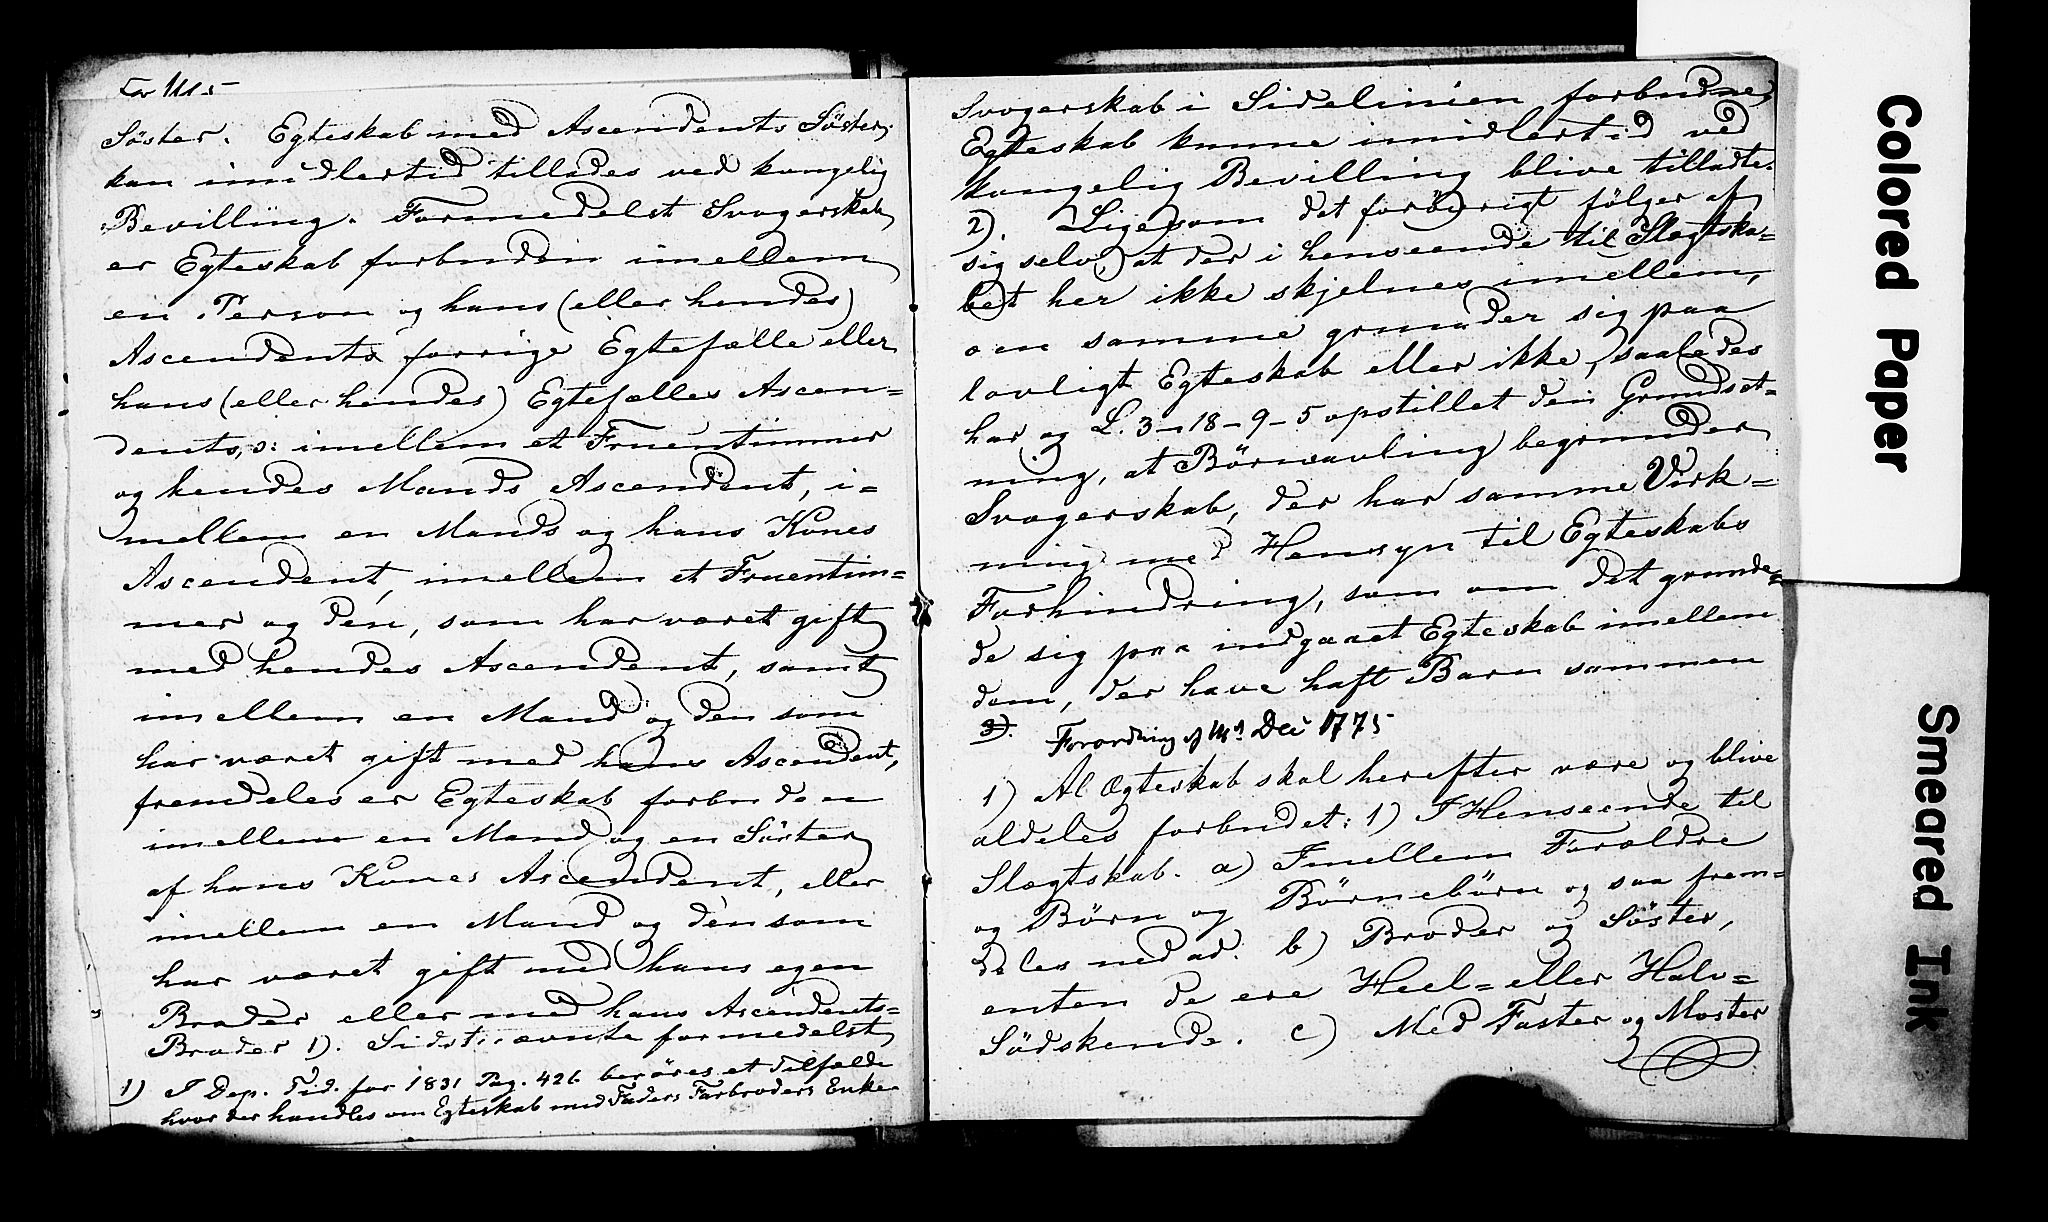 Söster. Egteskab med Ascendents Söster
kan imidlertid tillades ved kongelig
Bevilling. Formedelst Svogerskab
er Egteskab forbuden imellem
en Person og hans (eller hendes)
Ascendents forrige Egtefælle eller
hans (eller hendes) Egtefælles Ascen=
dents, ɔ: imellem et Fruentimmer
og hendes Mands Ascendent, i=
mellem en Mands og hans Kones
Ascendent, imellem et Fruentim=
mer og den, som har været gift
med hendes Ascendent, samt
imellem en Mand og den som
har været gift med hans Ascendent,
fremdeles er Egteskab forbuden
imellem en Mand og en Söster
af hans Kones Ascendent, eller
imellem en Mand og den som
har været gift med hans egen
Broder eller med hans Ascendents=
Broder 1). Sidstnævnte formedelst
1) I Dep. Tid. for 1831 Pag. 426 beröres et Tilfælde
hvor der handles om Egteskab med Faders Farbroders Enke
Svogerskab i Sidelinien forbudne
Egteskab kunne imidlertid ved
kongelig Bevilling blive tilladte.
2). Ligesom det forövrigt fölger af
sig selv, at der i henseende til Slægtska=
bet her ikke skjelnes imellem,
om samme grunder sig paa
lovligt Egteskab eller ikke, saaledes
har og L. 3-18-9-5 opstillet den Grundsæt=
ning, at Börneavling begrunder
Svogerskab, der har samme Virk=
ning med Hensyn til Egteskabs
Forhindring, som om det grunde=
de sig paa indgaaet Egteskab imellem
dem, der have haft Barn sammen
2). Forordning af 14d Dec 1775
1) Al Ægteskab skal herefter være og blive
aldeles forbudet: 1) I Henseende til
Slægtskab. a) Imellem Forældre
og Börn og Börnebörn og saa frem=
deles nedad. b) Broder og Söster,
enten de ere Heel- eller Halv=
Södskende. c) Med Faster og Moster
Colored Paper
Smeared Ink